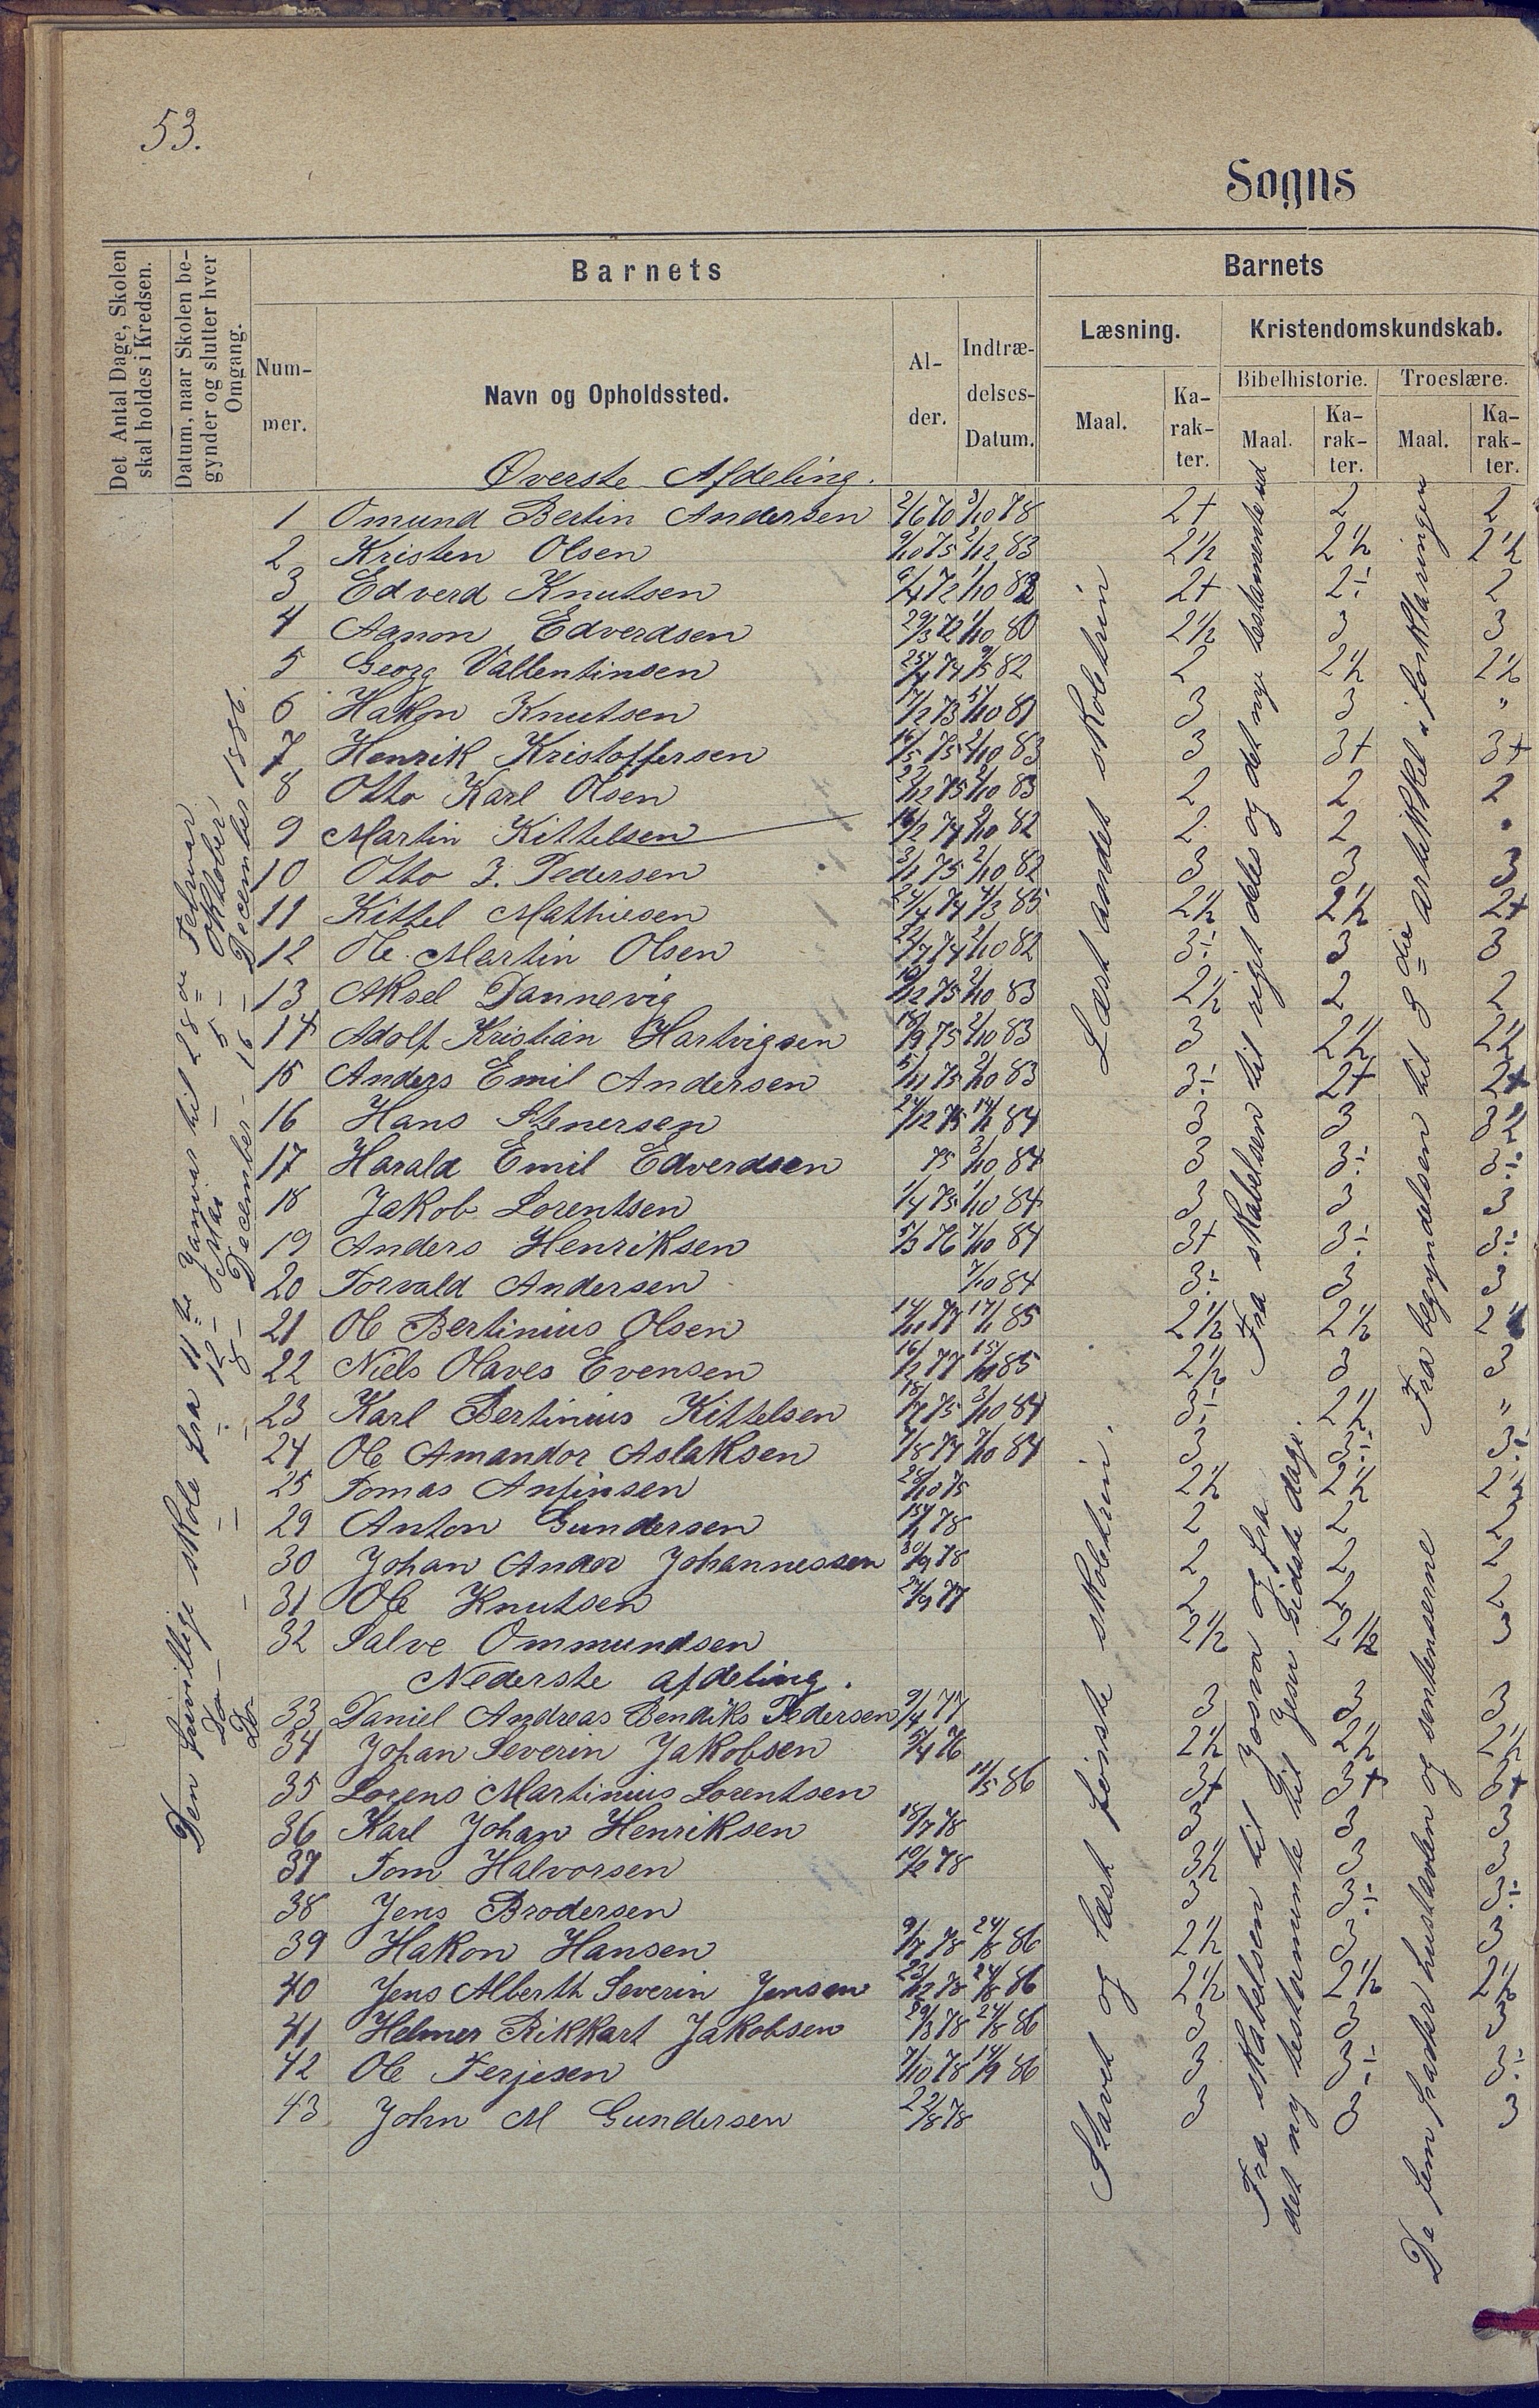 53.
Sogns
Det Antal Dage, Skolen skal holdes i Kredsen.
Datum, naar Skolen begynder og slutter hver Omgang.
Barnets
Nummer.
Navn og Opholdssted.
Alder.
Indtrædelses-Datum.
Barnets
Læsning.
Kristendomskundskab.
Maal.
Karakter.
Bibelhistorie.
Troeslære.
Maal.
Karakter.
Maal.
Karakter.
Den frivillige skole fra 11te Januar til 28de Februar
Do — — 12 — Juli — 5 — Oktober
Do — — 8 — December — 16 — December 1886.
Øverste Afdeling.
1 Omund Bertin Andersen 2/6 70 3/10 78 2+ 2 2
2 Kristen Olsen 9/10 75 2/12 83 2 1/2 2 1/2 2 1/2
3 Edverd Knutsen 6/4 72 1/10 82 2+ 2÷ 2
4 Aanon Edverdsen 29/3 72 1/10 80 2 1/2 3 3
5 Georg Vallentinsen 25/4 74 9/5 82 2 2 1/2 2 1/2
6 Hakon Knutsen 17/2 73 5/10 81 3 3 "
7 Henrik Kristoffersen 16/5 75 2/10 83 3 3+ 3+
8 Otto Karl Olsen 22/12 75 2/10 83 2 2 2
9 Martin Kittelsen 16/2 74 2/10 82 2 2 "
10 Otto J. Pedersen 3/11 75 2/10 82 3 3 3
11 Kittel Mathiesen 24/4 74 4/3 85 2 1/2 2 1/2 2+
12 Ole Martin Olsen 22/7 74 2/10 82 3÷ 3 3
13 Aksel Dannevig 10/12 75 2/10 83 2 1/2 2 2
14 Adolf Kristian Hartvigsen 18/9 75 2/10 83 3 2 1/2 2 1/2
15 Anders Emil Andersen 5/11 75 2/10 83 3÷ 2+ 2+
16 Hans Stenersen 24/12 75 14/1 84 3 3 3 1/2
17 Harald Emil Edverdsen 75 3/10 84 3 3÷ 3÷
18 Jakob Lorentsen 1/4 75 1/10 84 3 3 3
19 Anders Henriksen 5/3 76 7/10 84 3+ 3÷ 3÷
20 Torvald Andersen 7/10 84 3÷ 3 3
21 Ole Bertinius Olsen 14/11 77 17/1 85 2 1/2 2 1/2 2 1/2
22 Niels Olaves Evensen 16/2 77 15/1 85 2 1/2 3 3
23 Karl Bertinius Kittelsen 18/7 75 3/10 84 3÷ 2 1/2 "
24 Ole Amandor Aslaksen 7/8 74 7/10 84 3 3÷ 3÷
25 Tomas Anfinsen 28/10 75 2 1/2 2 1/2 2 1/2
29 Anton Gundersen 15/1 78 2 2 2
30 Johan Andor Johannessen 30/9 78 2 2 2
31 Ole Knutsen 27/9 77 2 2 2
32 Salve Ommundsen 2 1/2 2 1/2 3
Nederste afdeling.
33 Daniel Andreas Bendiks Pedersen 9/4 77 3 3 3
34 Johan Severin Jakobsen 5/4 76 2 1/2 2 1/2 2 1/2
35 Lorens Martinius Lorentsen 11/5 86 3+ 3+ 3+
36 Karl Johan Henriksen 18/7 78 3 3 3
37 Tom Halvorsen 10/2 78 3 1/2 3 3
38 Jens Brodersen 3 3÷ 3÷
39 Hakon Hansen 9/7 78 24/8 86 2 1/2 3 3
40 Jens Alberth Severin Jensen 23/12 78 24/8 86 2 1/2 2 1/2 2 1/2
41 Helmer Rikkart Jakobsen 29/3 78 24/8 86 3 3 3
42 Ole Terjesen 7/10 78 14/9 86 3 3÷ 3÷
43 John M Gundersen 22/8 78 3 3 3
Læst andet skoletrin
Stavet og læst første skoletrin.
Fra skabelsen til riget deles og det ny testamente ud
Fra skabelsen til Josva og fra
det ny testamente til Jesu sidste dage.
Fra begyndelsen til 3die artikkel i forklaringen
De fem parter hustavlen og sentenserne